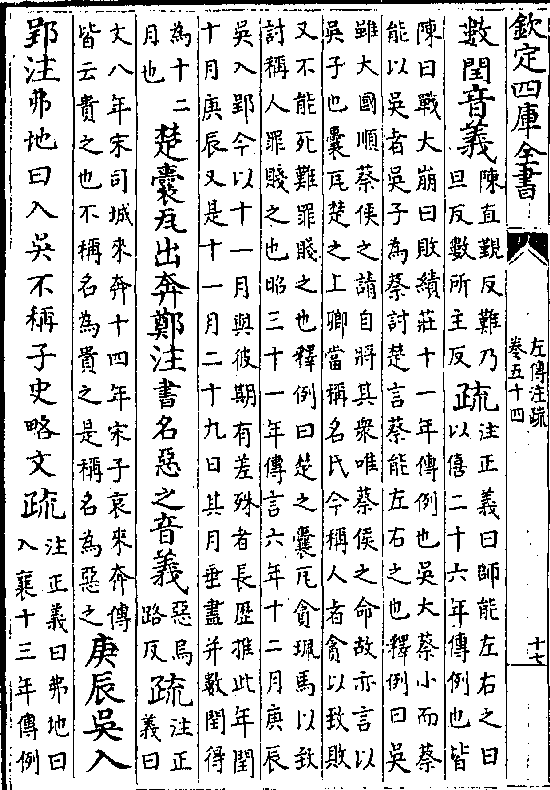 欽定四庫全書
左傳注疏
卷五十四
十七
數閏音義
陳直覲反難乃
旦反數所主反
疏
注正義曰師能左右之曰
以僖二十六年傳例也皆
陳曰戰大崩曰敗績莊十一年傳例也吳大蔡小而蔡
能以吳者吳子為蔡討楚言蔡能左右之也釋例曰吳
雖大國順蔡侯之請自將其衆唯蔡侯之命故亦言以
吳子也囊瓦楚之上卿當稱名氏今稱人者貪以致敗
又不能死難罪賤之也釋例曰楚之囊瓦貪珮馬以致
討稱人罪賤之也昭三十一年傳言六年十二月庚辰
吳入郢今以十一月與彼期有差殊者長歴推此年閏
十月庚辰又是十一月二十九日其月垂盡并數閏得
為十二
月也
楚囊瓦出奔鄭注書名惡之音義
惡烏
路反
疏
注正
義曰
文八年宋司城來奔十四年宋子哀來奔傳
皆云貴之也不稱名為貴之是稱名為惡之
庚辰吳入
郢注弗地曰入吳不稱子史略文疏
注正義曰弗地曰
入襄十三年傳例